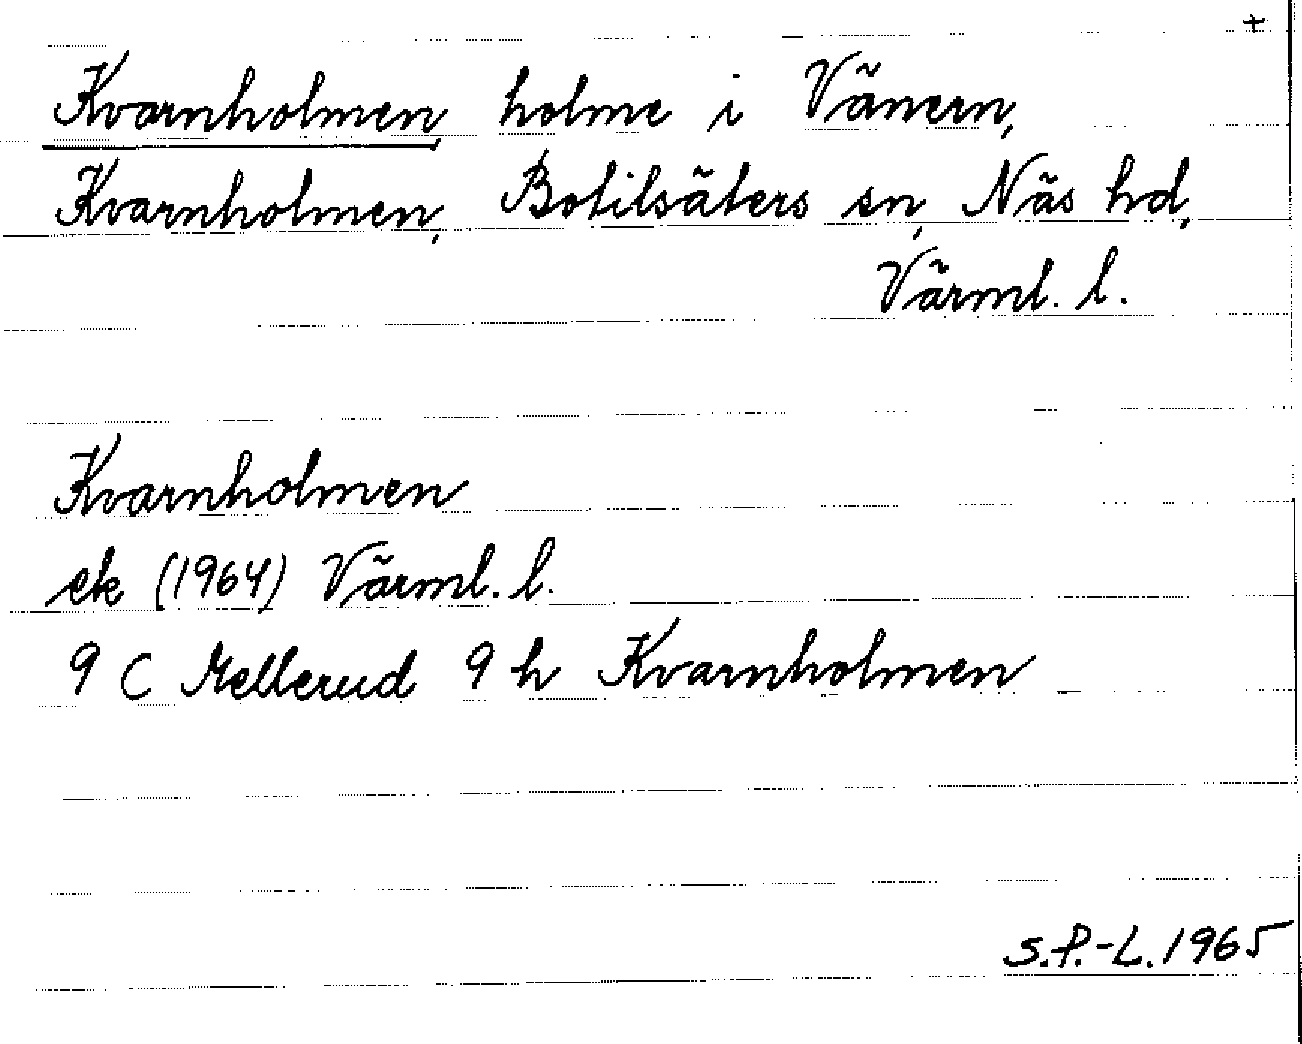 +
Kvarnholmen, holme i Vänern,
Kvarnholmen, Botilsäters sn, Näs hd,
Värml. l.
Kvarnholmen
ek (1964) Värml. l.
9 C Mellerud 9 h Kvarnholmen
S.P.-L. 1965